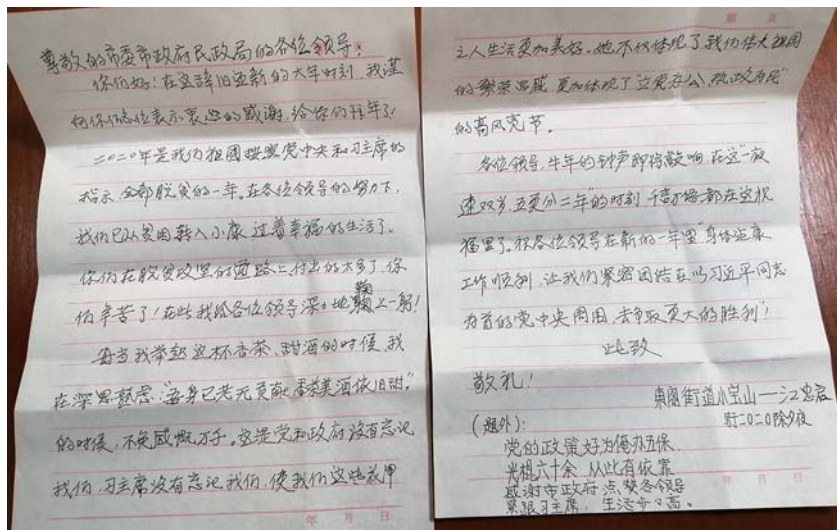 尊敬的市委市政府民政局的各位领导:
你们好!在这辞旧迎新的大年时刻,我谨
向你们各位表示衷心的感谢,给你们拜年了!
二〇二〇年是我们祖国按照党中央和习主席的
指示,全部脱贫的一年。在各位领导的努力下,
我们已从贫困转入小康,过着幸福的生活了。
你们在脱贫攻坚的道路上付出的太多了,你
们辛苦了!在此我给各位领导深深地鞠上一躬!
每当我举起这杯香茶、甜酒的时候,我
在深思熟虑:“吾身已老无贡献 香茶美酒依旧甜。”
的时候,不免感慨万千。这是党和政府没有忘记
我们,习主席没有忘记我们,使我们这些花甲
年 月 日
之人生活更加美好。她不仅体现了我们伟大祖国
的繁荣昌盛,更加体现了“立党为公,执政为民”
的高风亮节。
各位领导,牛年的钟声即将敲响,在这“一夜
连双岁,五更分二年”的时刻,千言万语都在这祝
福里了。祝各位领导在新的一年里“身体健康
工作顺利,让我们紧密团结在以习近平同志
为首的党中央周围,去争取更大的胜利”!
此致
敬礼!
东阁街道小宝山——江忠启
于二〇二〇除夕夜
(题外):
党的政策好为俺办五保
光棍六十余 从此有依靠
感谢市政府 点赞各领导
紧跟习主席,生活步步高。
年 月 日